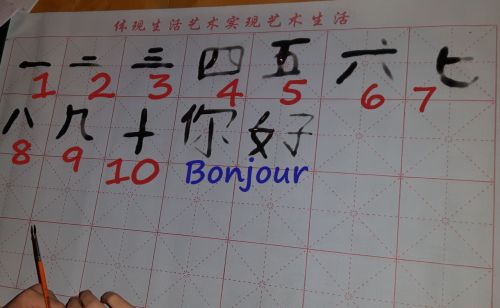 体现生活艺术实现艺术生活
一 二 三 四 五 六 七
1 2 3 4 5 6 7
八 九 十 你 好
8 9 10 Bonjour